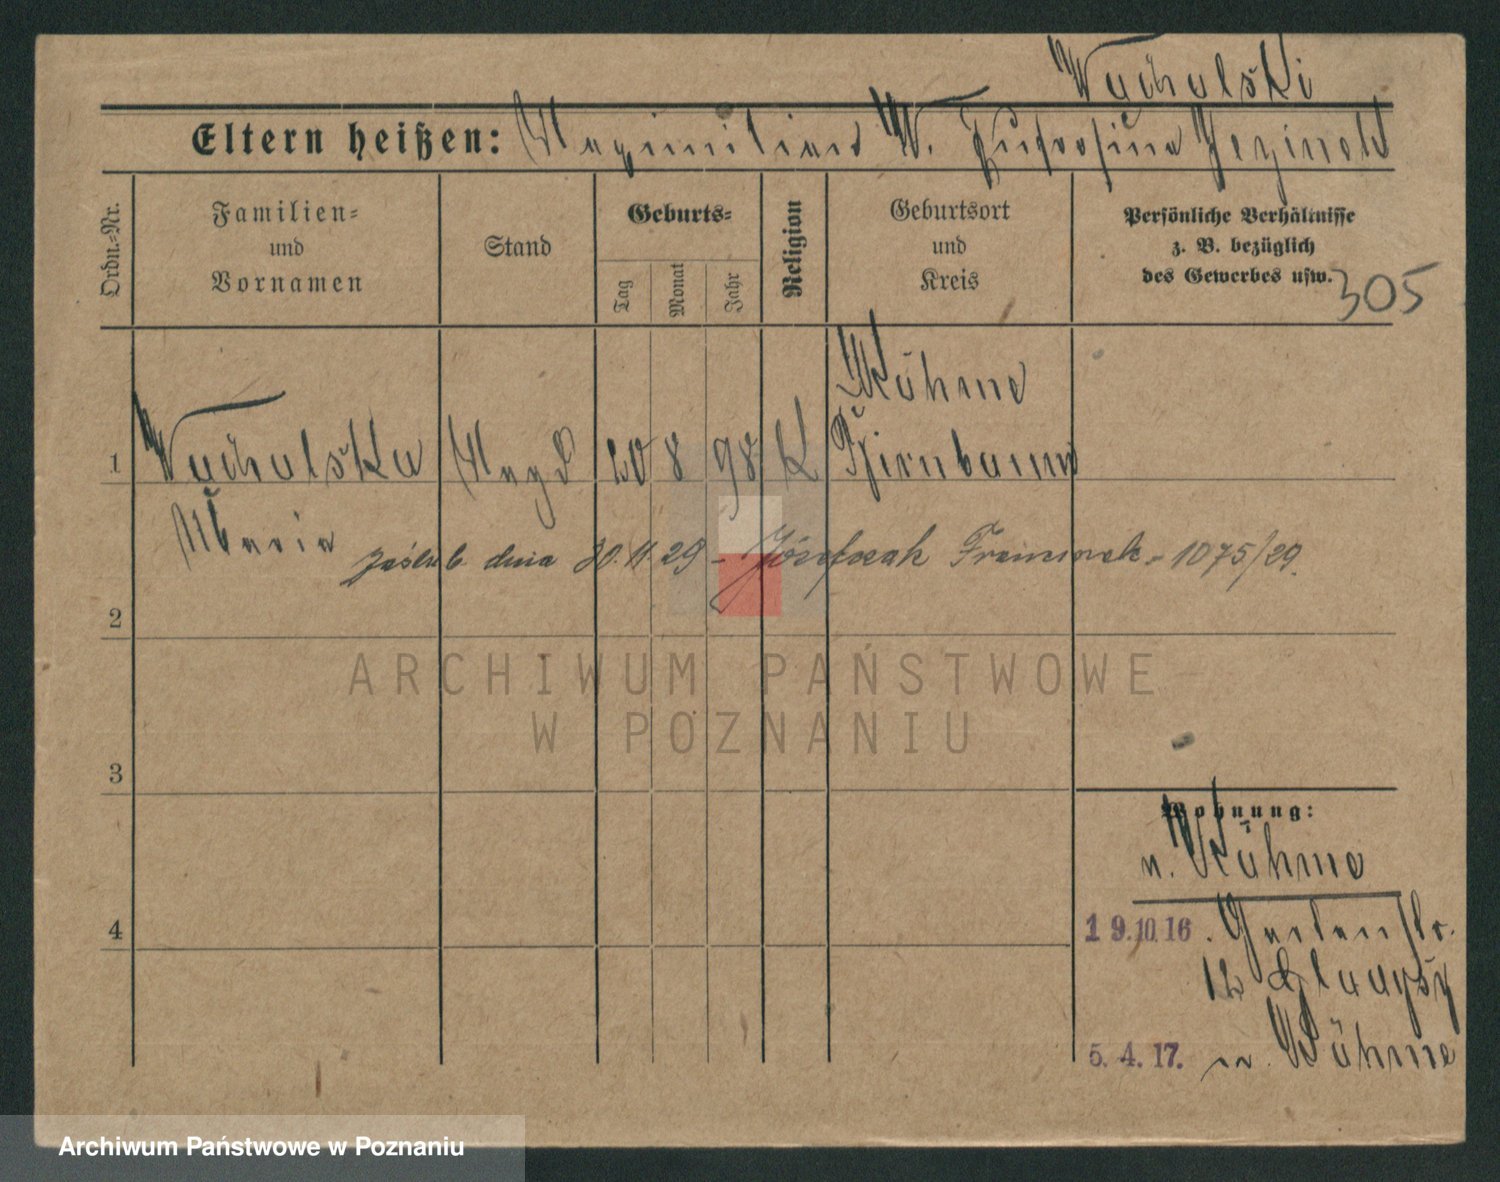 Wachalski
Eltern heißen: Maximilian W. Eufrosina Jezinek
Ordn.=Nr.
Familien=
und
Vornamen
Stand
Geburts=
Tag
Monat
Jahr
Religion
Geburtsort
und
Kreis
Persönliche Verhältnisse
z. B. bezüglich
des Gewerbes usw.
305
Kühme
1 Wachalska Magd 20 8 98 K Birnbaum
Maria
zaślub. dnia 30.11.29 - Józefczak Franciszek - 1075/29.
2
ARCHIWUM PAŃSTWOWE
W POZNANIU
3
Wohnung:
n. Kühme
4
19.10.16. Gartenstr.
12
5.4.17. n. Kühme
Archiwum Państwowe w Poznaniu